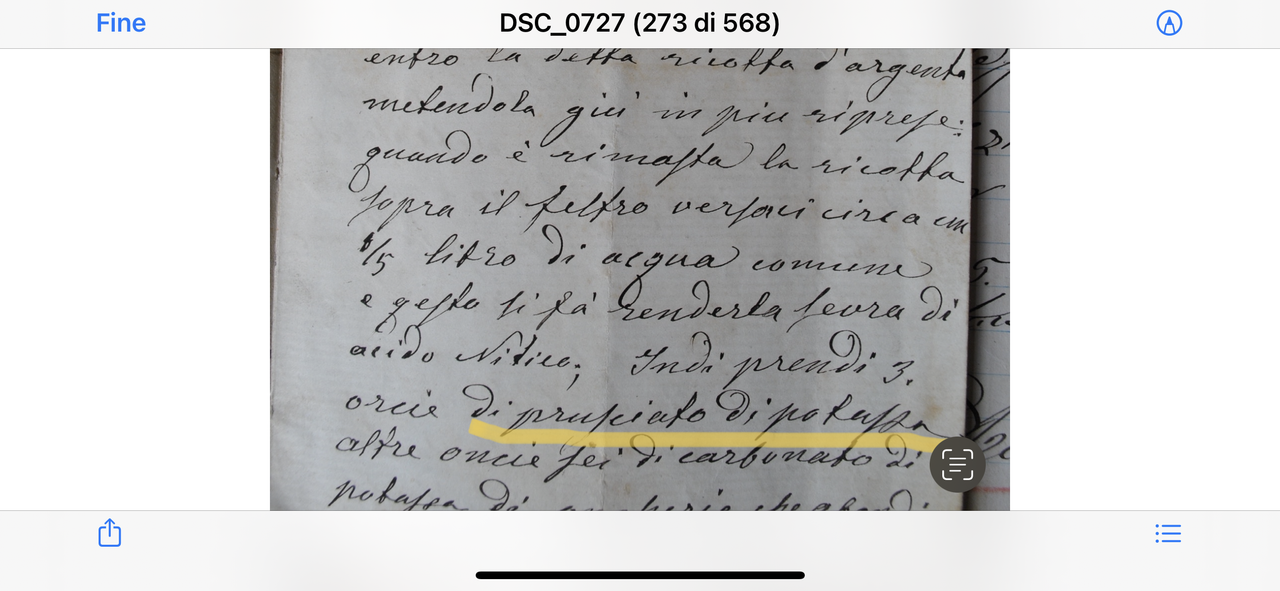 Fine
DSC_0727 (273 di 568)
entro la detta ricotta d'argento
metendola giù in piu riprese:
quando è rimasta la ricotta
sopra il feltro versaci circa un
1/5 litro di acqua comune
e qesto si fà renderla sevra di
acido Nitico; Indi prendi 3.
oncie di prusiato di potassa
altre oncie sei di carbonato di
potassa di